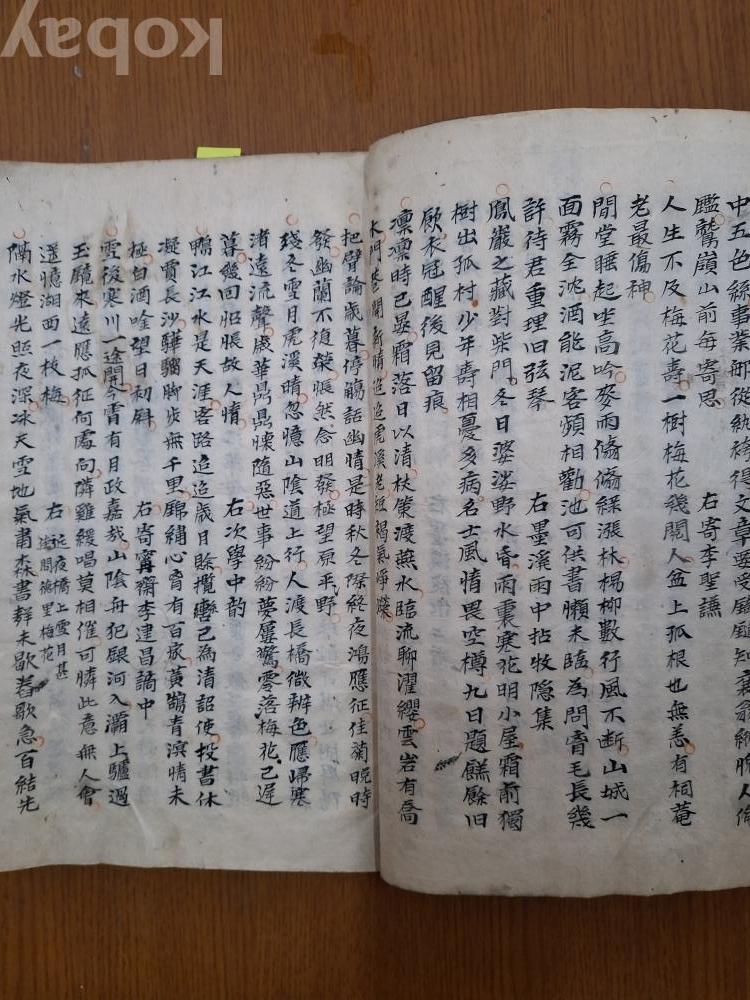 kobay
中五色絲事業都從紈袴得文章要受
鑑鷲嶺山前每寄思 右寄李聖議
人生不及梅花壽一樹梅花幾閱人盆上孤根也無恙有祠菴
老最傷神
閒堂睡起坐高吟麥雨翛翛綠漲林楊柳數行風不斷山城一
面霧全沈酒能泥客頻相勸池可供書願未臨為問霄毛長幾
許待君重理旧弦琴 右墨溪雨中拈牧隐集
鳳巖之藏對柴門冬日婆娑野水昏雨裏寒花明小屋霜前獨
樹出孤村少年壽相憂多病名士風情畏空樽九日題糕餘旧
厭衣冠醒後見留痕
凛凛時已晏霜落日以清杖策渡蕪水臨流聊濯纓雲岩有喬
木門巷開新晴迢迢虎溪老短褐氣崢嶸
把臂論歲暮停觴話幽情是時秋冬際終夜鴻應征佳菊晚時
發幽蘭不復榮悵然念明發極望原平野
殘冬雪月虎溪晴忽憶山陰道上行人渡長橋微辨色應歸寒
渚遠流聲歲華鼎鼎懷隨惡世事紛紛夢屢驚零落梅花已遲
暮幾回怊悵故人情 右次學中韵
鴨江江水是天涯客路迢迢歲月賒攬轡已為清詔使投書休
凝賈長沙驊騮脚步無千里錦繡心肯有百家黃鵠青濱情未
極白酒喰望日初斜 右寄寗齋李建昌謫中
雪後寒川一途開今霄有月政嘉哉山陰舟犯銀河入灞上驢過
玉廳來遠應孤征何處向隣雞緩唱莫相催可憐此意無人會
遥憶湖西一枝梅 右 延夜橋上雪月甚
佳聞德里梅花
隔水燈光照夜深冰天雪地氣肅森書群未歇舂歌急百結先